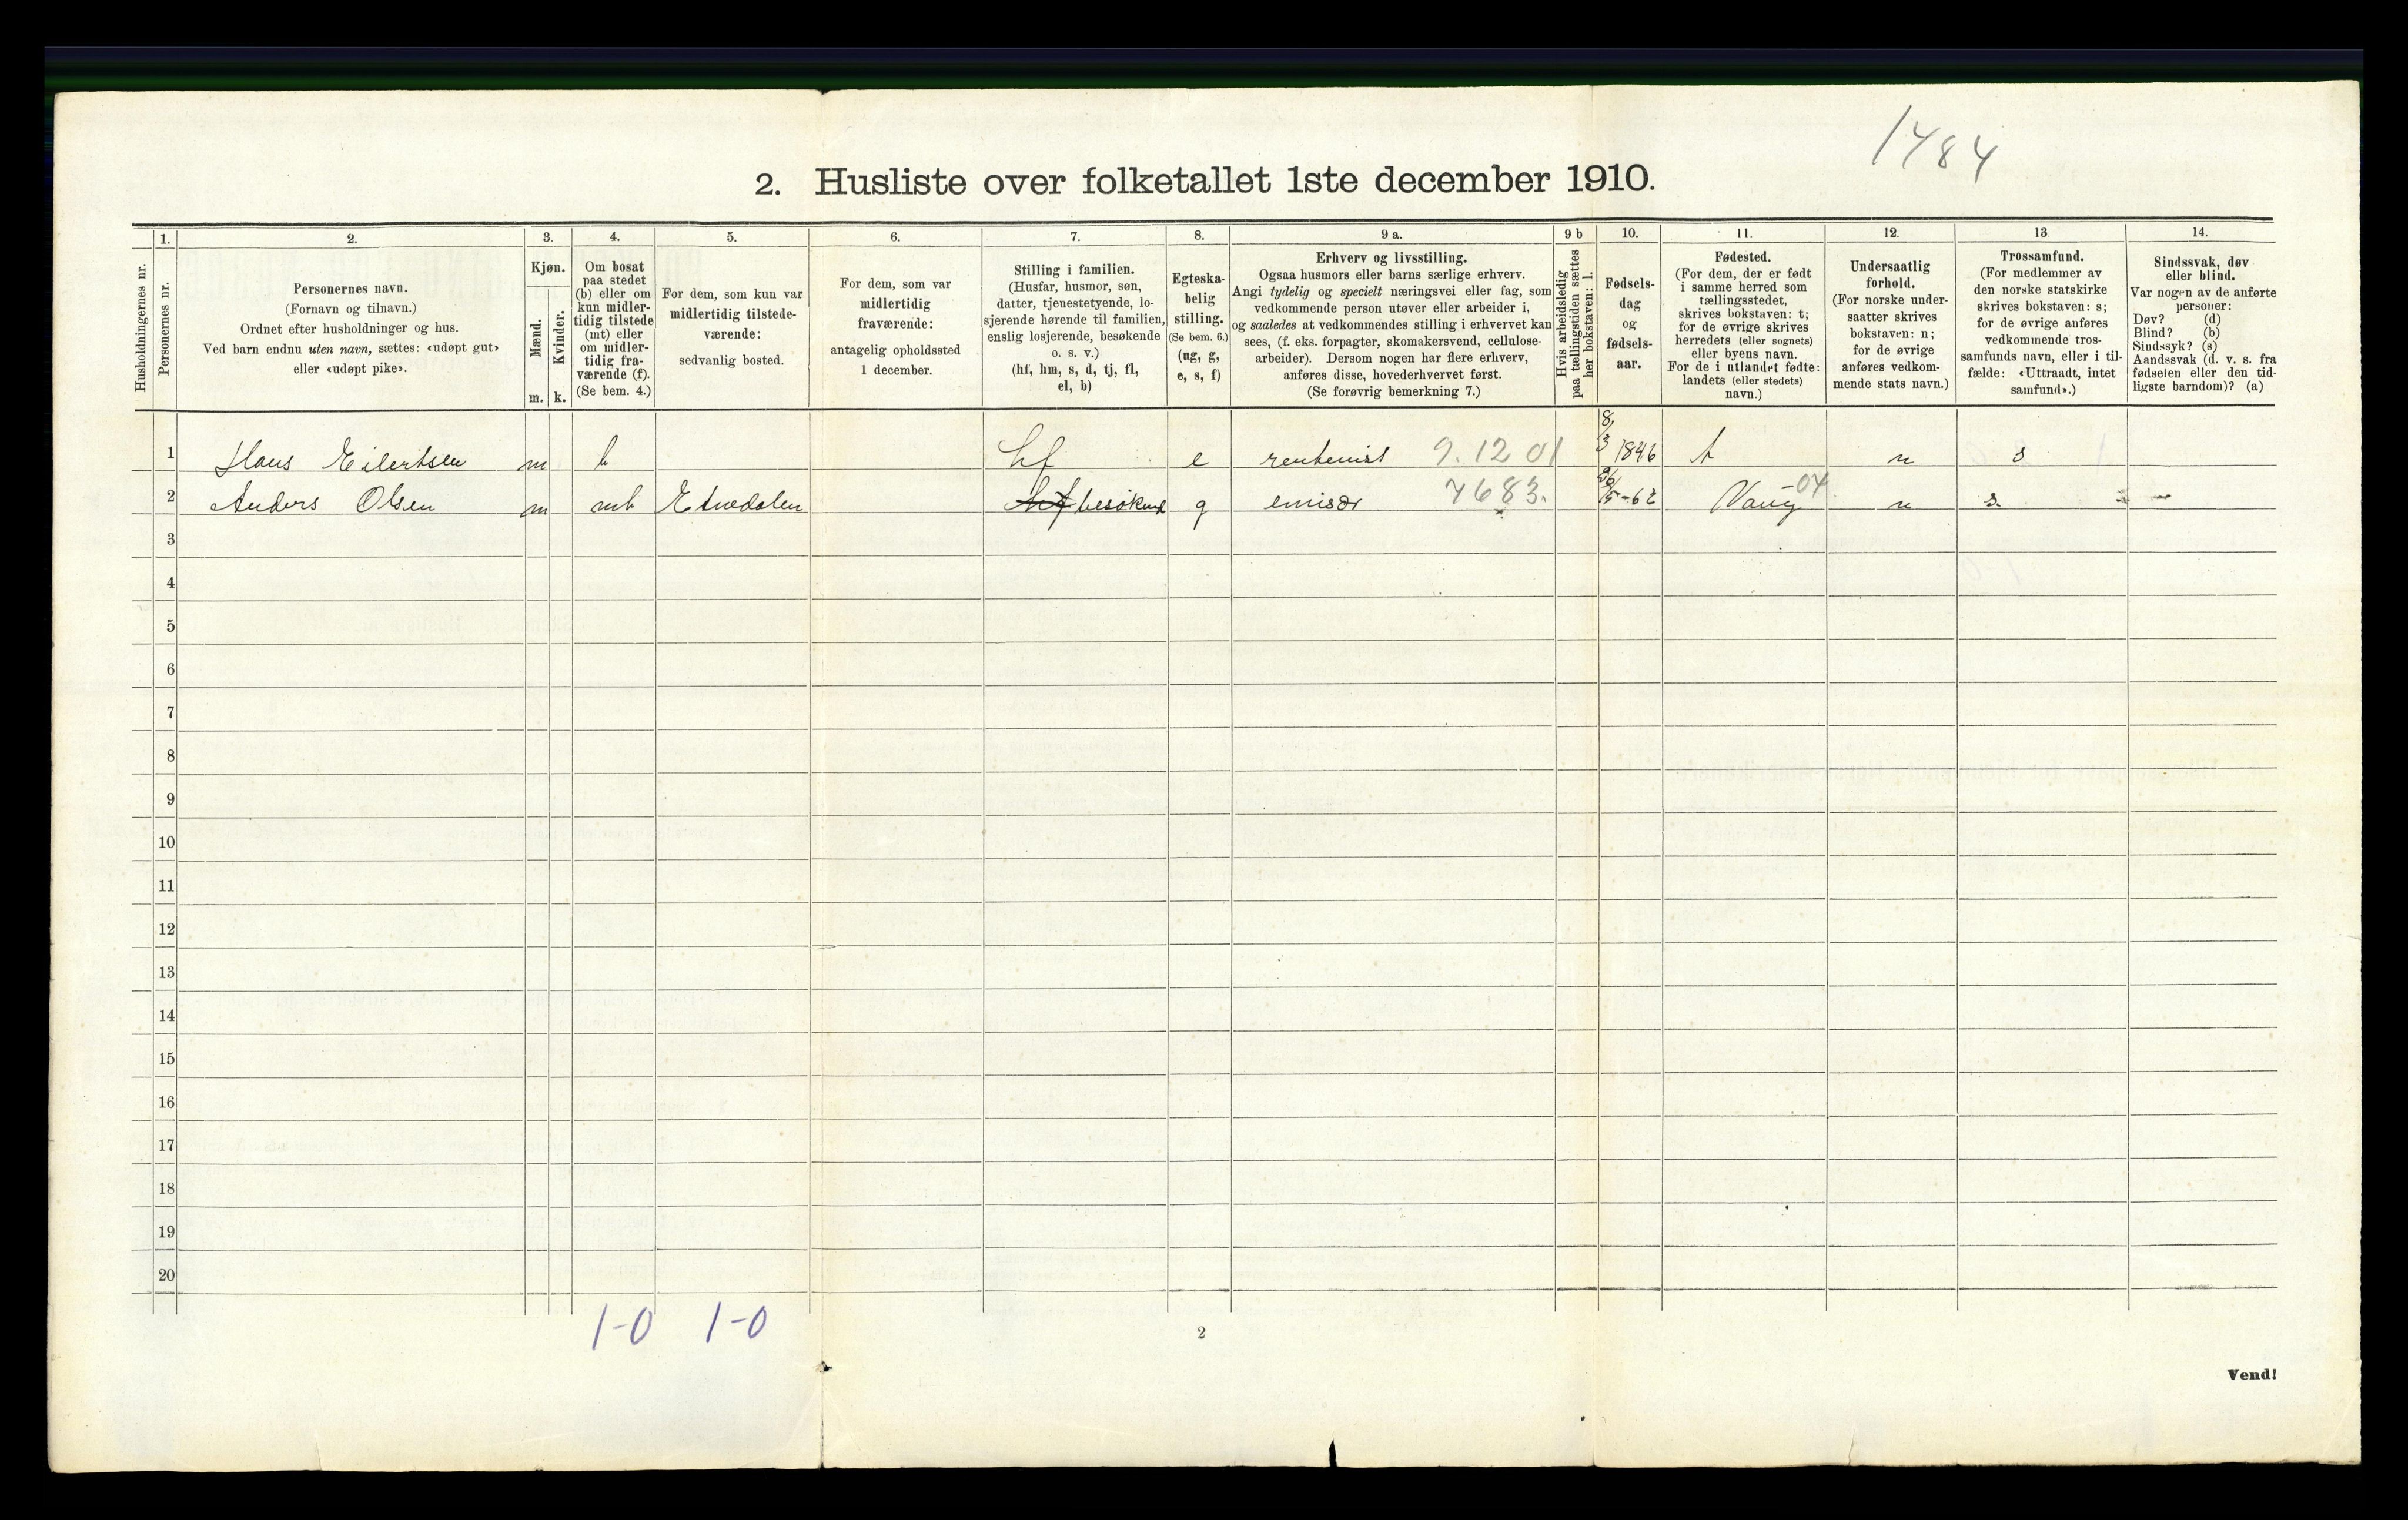 1484
2. Husliste over folketallet 1ste december 1910.
1. 2. 3. 4. 5. 6. 7. 8. 9 a. 9 b 10. 11. 12. 13 14.
Husholdningernes nr.
Personernes nr.
Personernes navn.
(Fornavn og tilnavn.)
Ordnet efter husholdninger og hus.
Ved barn endnu uten navn, sættes: «udøpt gut»
eller «udøpt pike».
Kjøn.
Mænd.
Kvinder.
m. k.
Om bosat
paa stedet
(b) eller om
kun midler-
tidig tilstede
(mt) eller
om midler-
tidig fra-
værende (f).
(Se bem. 4.)
For dem, som kun var
midlertidig tilstede-
værende:
sedvanlig bosted.
For dem, som var
midlertidig
fraværende:
antagelig opholdssted
1 december.
Stilling i familien.
(Husfar, husmor, søn,
datter, tjenestetyende, lo-
sjerende hørende til familien,
enslig losjerende, besøkende
o. s. v.)
(hf, hm, s, d, tj, fl,
el, b)
Egteska-
belig
stilling.
(Se bem. 6.)
(ug, g,
e, s, f)
Erhverv og livsstilling.
Ogsaa husmors eller barns særlige erhverv.
Angi tydelig og specielt næringsvei eller fag, som
vedkommende person utøver eller arbeider i,
og saaledes at vedkommendes stilling i erhvervet kan
sees, (f. eks. forpagter, skomakersvend, cellulose-
arbeider). Dersom nogen har flere erhverv,
anføres disse, hovederhvervet først.
(Se forøvrig bemerkning 7.)
Hvis arbeidsledig
paa tællingstiden sættes
her bokstaven: l.
Fødsels-
dag
og
fødsels-
aar.
Fødested.
(For dem, der er født
i samme herred som
tællingsstedet,
skrives bokstaven: t;
for de øvrige skrives
herredets (eller sognets)
eller byens navn.
For de i utlandet fødte:
landets (eller stedets)
navn.)
Undersaatlig
forhold.
(For norske under-
saatter skrives
bokstaven: n;
for de øvrige
anføres vedkom-
mende stats navn.)
Trossamfund.
(For medlemmer av
den norske statskirke
skrives bokstaven: s;
for de øvrige anføres
vedkommende tros-
samfunds navn, eller i til-
fælde: «Uttraadt, intet
samfund».)
Sindssvak, døv
eller blind.
Var nogen av de anførte
personer:
Døv? (d)
Blind? (b)
Sindssyk? (s)
Aandssvak (d. v. s. fra
fødselen eller den tid-
ligste barndom)? (a)
1 Hans Eilertsen m b hf e rentenist 9.12 01 8/3 1846 t n s
2 Anders Olsen m mt Etnedalen hf besøkend g emisær 7683. /5-62 Vang 04 n s. -
3
4
5
6
7
8
9
10
11
12
13
14
15
16
17
18
19
20
1-0 1-0
2
Vend!